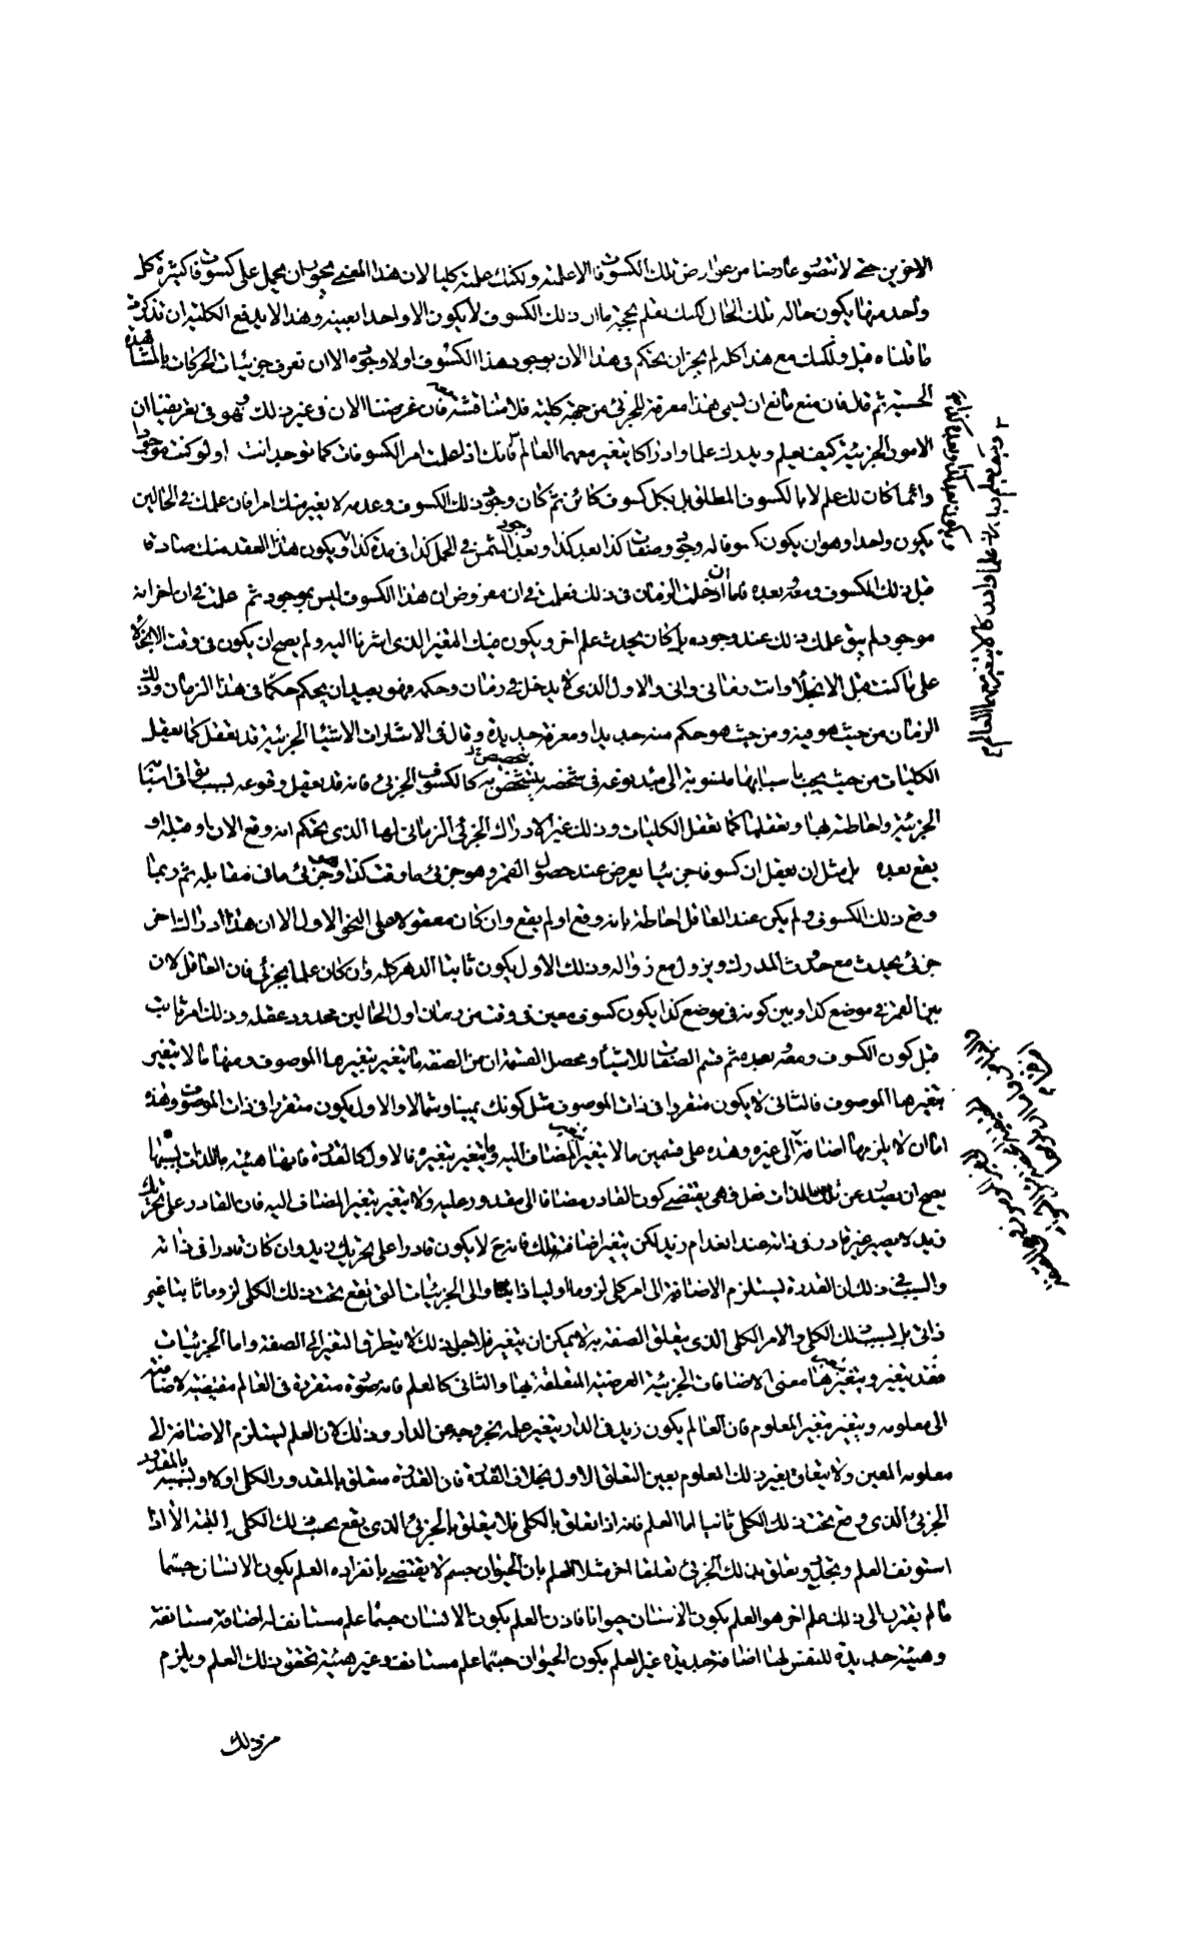 الاخرين حتى لا تتصور عارضا من عوارض تلك الكسوفات الا علمته ولكنك علمته كليا لان هذا المعنى يجوز ان يحمل على كسوفات كثيرة كل
واحد منها يكون حاله تلك الحال لكنك تعلم بحجة ما ان ذلك الكسوف لا يكون الا واحدا بعينه وهذا لا يدفع الكلية ان تذكرت
ما قلناه قبل ولكنك مع هذا كله لم يجز ان تحكم في هذا الان بوجود هذا الكسوف او لا وجوده الا ان تعرف جزئيات الحركات بالمشاهدة
الحسية ثم قال فان منع مانع ان يسمى هذا معرفة للجزئي من جهة كلية فلا مناقشة معه فان غرضنا الان في غير ذلك وهو في تعريفنا ان
الامور الجزئية كيف تعلم وتدرك علما وادراكا يتغير معهما العالم فانك اذا علمت امر الكسوفات كما توجد انت او لو كنت موجودا
دائما كان لك علم لا بالكسوف المطلق بل بكل كسوف كائن ثم كان وجود ذلك الكسوف وعدمه لا يغير منك امرا فان علمك في الحالين
يكون واحدا وهو ان يكون كسوفا له وجود وصفات كذا بعد كذا وبعد وجود الشمس في الحمل كذا في مدة كذا ويكون هذا العقد منك صادقا
قبل ذلك الكسوف ومعه وبعده فاما ان ادخلت الزمان في ذلك فعلمت في ان مفروض ان هذا الكسوف ليس بموجود ثم علمت في ان اخر انه
موجود لم يبق علمك ذلك عند وجوده بل كان يحدث علم اخر ويكون فيك المغير الذي اشرنا اليه ولم يصح ان يكون في وقت الانجلاء
على ما كنت قبل الانجلاء وانت زماني واني والاول الذي لا يدخل في زمان وحكمه فهو بعيد ان يحكم حكما في هذا الزمان وذلك
الزمان من حيث هو فيه ومن حيث هو حكم منه جديد او معرفة جديدة وقال في الاشارات الاشياء الجزئية قد تعقل كما تعقل
الكليات من حيث يجب باسبابها منسوبة الى مبدء نوعه في شخصه يتخصص به كالكسوف الجزئي فانه قد يعقل وقوعه بسبب توافي اسبابه
الجزئية واحاطته بها وتعقلها كما تعقل الكليات وذلك غير الادراك الجزئي الزماني لها الذي يحكم انه وقع الان او قبله او
يقع بعده بل مثل ان يعقل ان كسوفا جزئيا يعرض عند حصول القمر وهو جزئي ما وقت كذا وهو جزئي ما في مقابله ثم ربما
وقع ذلك الكسوف ولم يكن عند العاقل احاطة بانه وقع او لم يقع وان كان معقولا على النحو الاول الا ان هذا ادراك اخر
جزئي يحدث مع حدوث المدرك ويزول مع زواله وذلك الاول يكون ثابتا الدهر كله وان كان علما بجزئي فان العاقل لان
بين القمر في موضع كذا وبين كونه في موضع كذا يكون كسوف معين في وقت من زمان اول الحالين محدود عقله وذلك امر ثابت
قبل كون الكسوف ومعه وبعده ثم قسم الصفات للاشياء ومحصل القسمة ان من الصفة ما يتغير بتغيرها الموصوف ومنها ما لا يتغير
بتغيرها الموصوف فالثاني لا يكون متقررا في ذات الموصوف مثل كونك يمينا وشمالا والاول يكون متقررا في ذات الموصوف وهذه
اما ان لا يلزمها اضافة الى غيره وهذه على قسمين ما لا يتغير بتغير المضاف اليه وما يتغير بتغيره فالاول كالقدرة فانها هيئة بالذات بسببها
يصح ان يصدر عن تلك الذات فعل فهي يقتضي كون القادر مضافا الى مقدور عليه ولا يتغير بتغير المضاف اليه فان القادر على تحريك
زيد لا يصير غير قادر في ذاته عند انعدام زيد لكن يتغير اضافته تلك فانه ح لا يكون قادرا على تحريك زيد وان كان قادرا في ذاته
والسبب في ذلك ان القدرة تستلزم الاضافة الى امر كلي لزوما اوليا ذاتيا والى الجزئيات التي تقع تحت ذلك الكلي لزوما ثانيا غير
ذاتي بل بسبب ذلك الكلي والامر الكلي الذي يتعلق الصفة به لا يمكن ان يتغير فلاجل ذلك لا يتطرق التغير الى الصفة واما الجزئيات
فقد يتغير وبتغيرها يتغير معنى الاضافات الجزئية العرضية المتعلقة بها والثاني كالعلم فانه صورة متقررة في العالم مقتضية لاضافته
الى معلومه ويتغير بتغير المعلوم فان العالم بكون زيد في الدار يتغير علمه بخروجه عن الدار وذلك لان العلم يستلزم الاضافة الى
معلومه المعين ولا يتعلق بغير ذلك المعلوم بعين التعلق الاول بخلاف القدرة فان القدرة متعلق بالمقدور الكلي اولا وبسببه بالمقدور
الجزئي الذي وقع تحت ذلك الكلي ثانيا اما العلم فانه اذا تعلق بالكلي فلا يتعلق بالجزئي الذي يقع تحت ذلك الكلي البتة الا اذا
استونف العلم وتجدد وتعلق بذلك الجزئي تعلقا اخر مثلا العلم بان الحيوان جسم لا يقتضي بانفراده العلم بكون الانسان جسما
ما لم يقترن الى ذلك علم اخر هو العلم بكون الانسان حيوانا فاذن العلم بكون الانسان جسما علم مستانف له اضافة مستانفة
وهيئة جديدة للنفس لها اضافة جديدة غير العلم بكون الحيوان جسما علم مستانف وغير هيئة تحقق ذلك العلم ويلزم
من ذلك